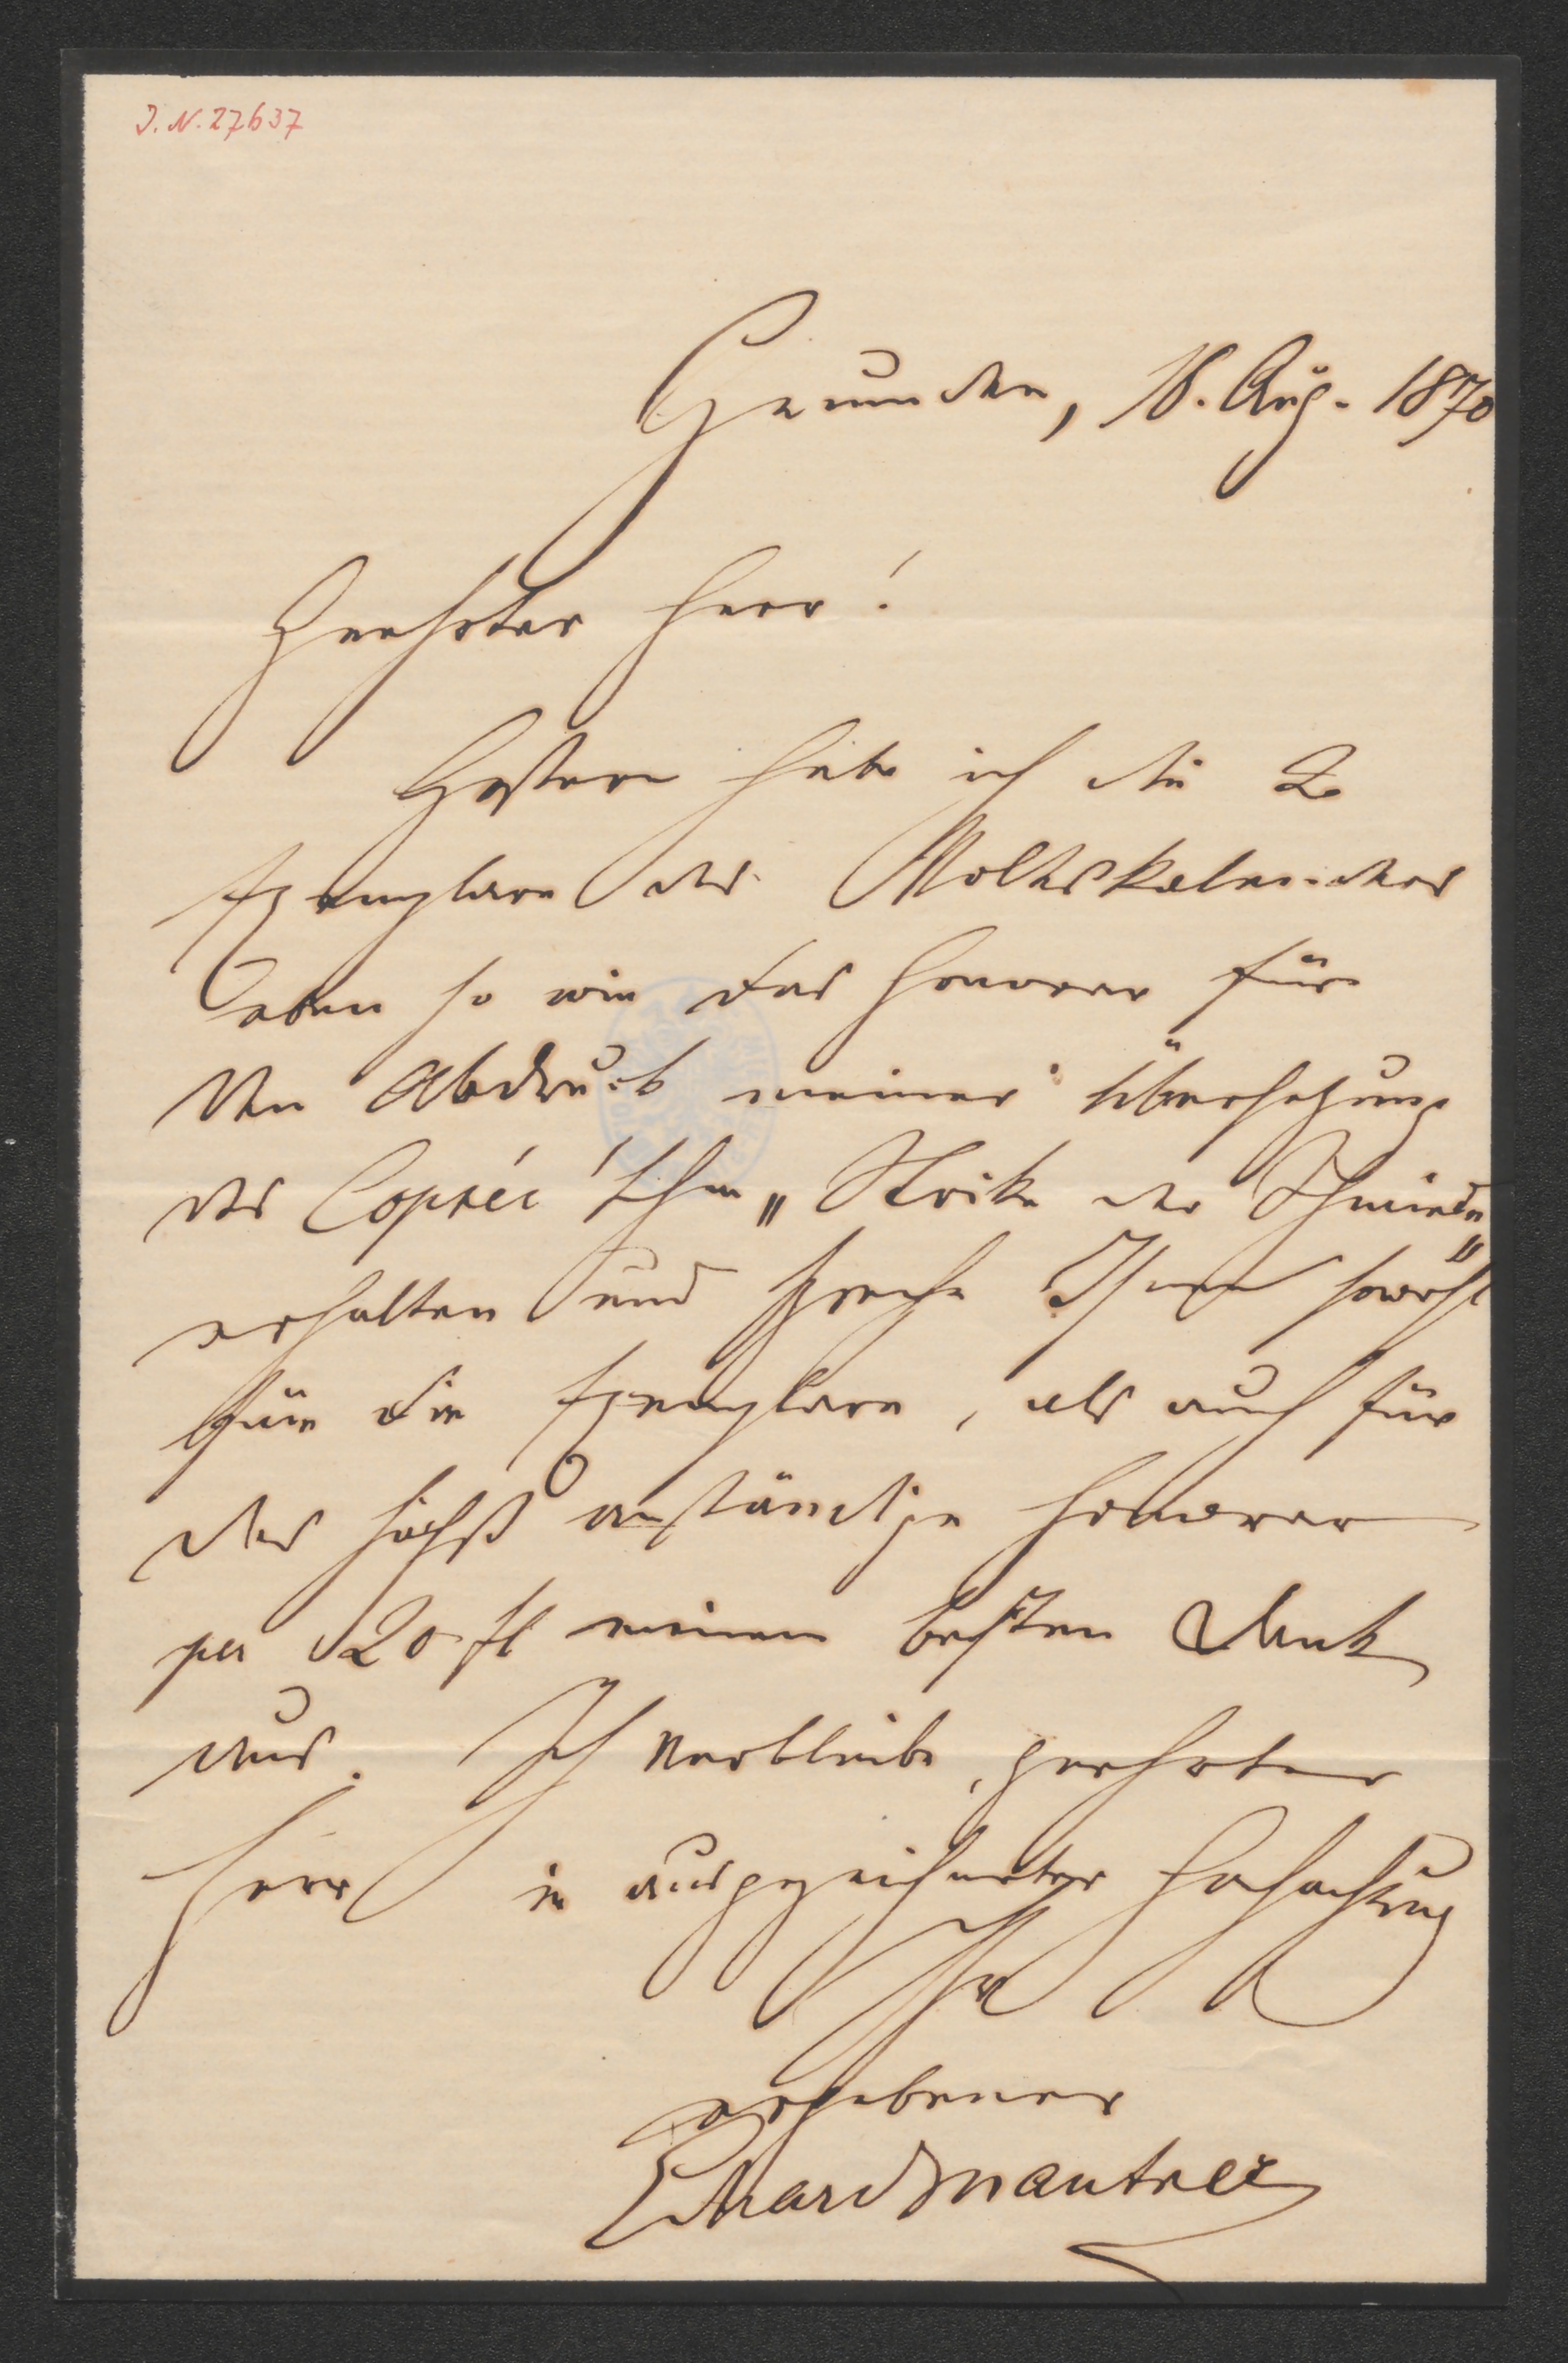 J. N. 27637
Gmunden, 18. Aug. 1870
Geehrter Herr!
Gestern habe ich die 2
Exemplare des Volkskalenders
eben so wie das Honorar für
den Abdruck meiner Übersetzung
des Coppée'schen „Strike der Schmiede"
erhalten und spreche Ihnen sowohl
für die Exemplare, als auch für
das höchst anständige Honorar
per 20 fl meinen besten Dank
aus. Ich verbleibe, geehrter
Herr in ausgezeichneter Hochachtung
Ihr
ergebener
Eduard Mautner